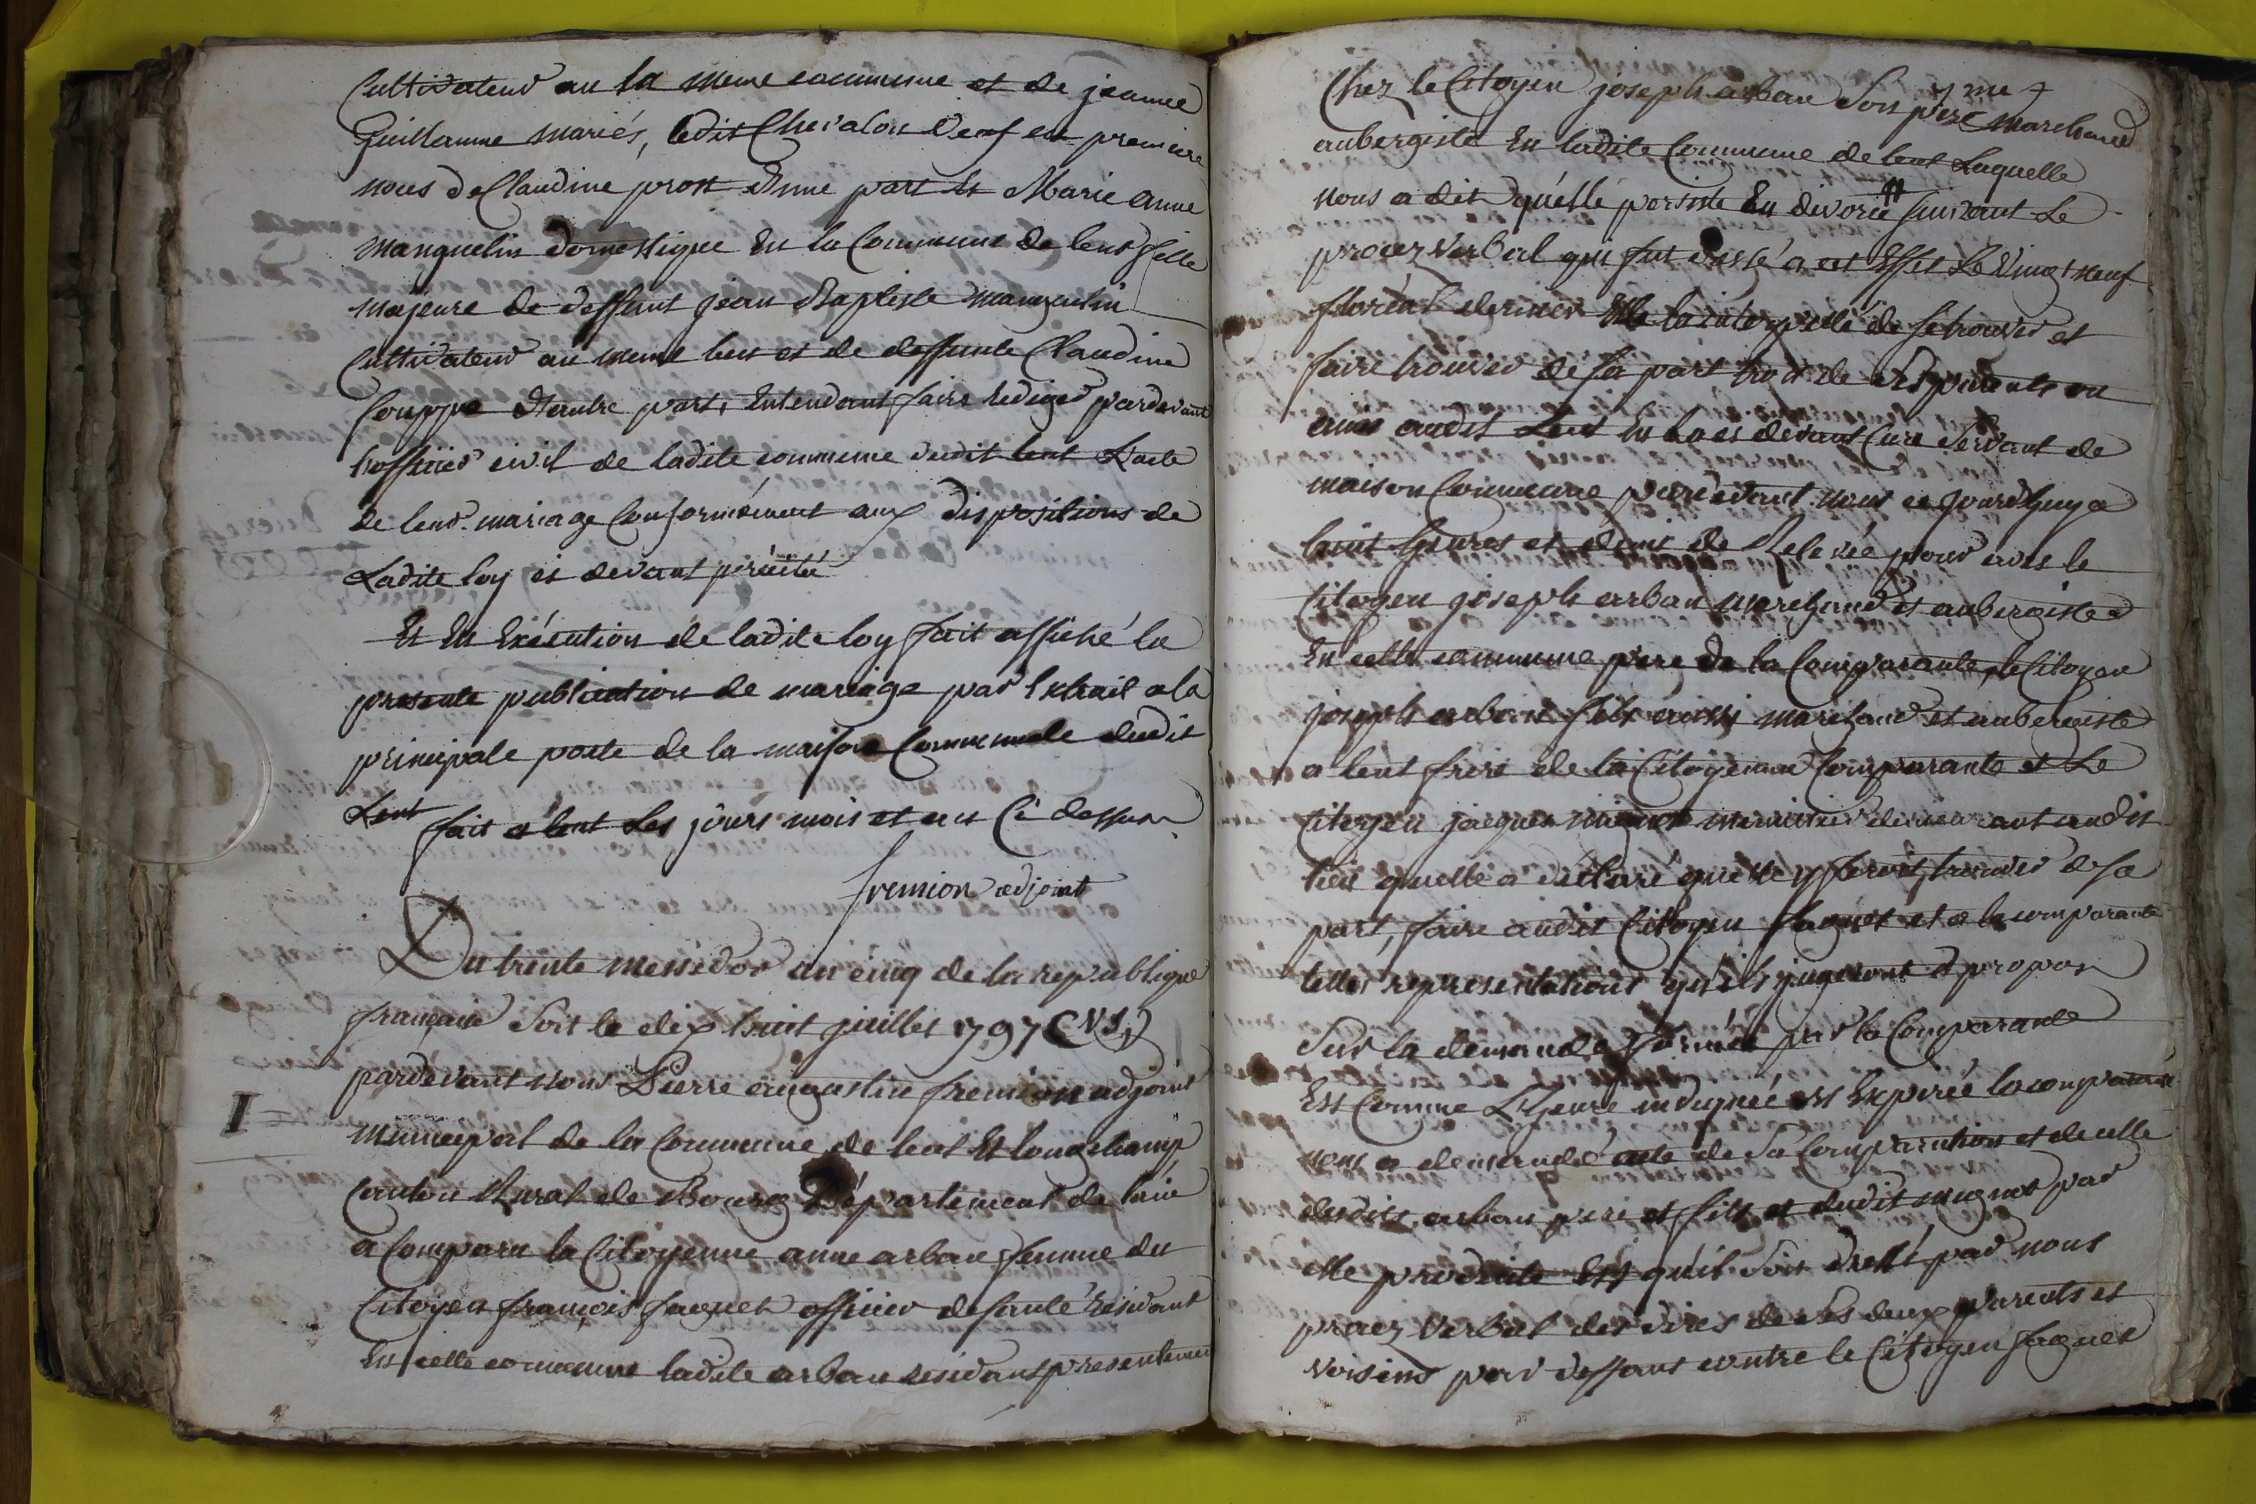 Cultivateur au la meme commune et de jeanne
Guillaume mariés, ledit Chevalon veuf en premiere
noces de Claudine prost d'une part Et Marie anne
manguelin domestique En la Commune de lent fille
majeure de deffunt jean Baptiste manguelin
Cultivateur au meme lieu et de deffunte Claudine
Couppe d'autre part, Entendant faire rediger pardevant
l'officier civil de ladite commune dudit lent L'acte
de leur mariage Conformément aux dispositions de
Ladite loy ci devant précité
Et En Exécution de ladite loy fait affiché la
presente publication de mariage par Extrait a la
principale porte de la maison Commune dudit
Lent fait a lent Les jours mois et an Ci dessus
fremion adjoint
Du trente messidor an cinq de la republique
française Soit le dix huit juillet 1797 (V S,)
pardevant nous Pierre augustin fremion adjoint
I
municipal de la Commune de lent Et longchamp
Canton Rural de Bourg Département de l'ain
a Comparu la Citoyenne anne arban femme du
Citoyen françois faguet officier de santé Residant
En cette commune ladite arban residant presentement
Chez le Citoyen joseph arban Son père marchand
aubergiste En ladite Commune de lent Laquelle
nous a dit qu'elle persiste En divorce suivant Le
procez verbal qui fut dressé a cet Effet Le Vingt neuf
floréal dernier Elle la interpellé de se trouver et
faire trouver de sa part trois de ses parents ou
amis audit Lent En la ci devant Cure Servant de
maison Commune pardevant nous ce jourdhuy a
huit heures et demi de Relevée pour avec le
Citoyen joseph arban marchand et aubergiste
En cette commune pere de la Comparante, le Citoyen
joseph arban fils aussi marchand et aubergiste
a lent frere de la Citoyenne Comparante et Le
Citoyen jacques mignot menuisier demeurant audit
lieu quelle a déclaré quelle y feroit trouver de sa
part, faire audit Citoyen faguet et a la comparante
telles representations qu'ils jugeront a propos
Sur la demande formée par la Comparante
Et Comme L'heure indiquée est Expirée la comparante
nous a demandé acte de Sa Comparution et de celle
desdits arban pere et fils et dudit mignot par
elle produite Et qu'il Soit dressé par nous
procez verbal des dires de ses deux parents et
voisins par deffaut contre le Citoyen faguet